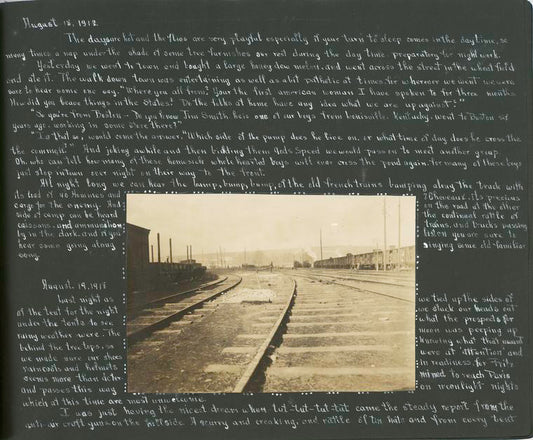 August 18, 1918
The days are hot and the flies are very playful especially if your turn to sleep comes in the daytime, so
many times a nap under the shade of some tree furnishes our rest during the day time preparing for nightwork.
Yesterday we went to town and bought a large honey dew melon and went across the street in the wheat field
and ate it. The walk down town was entertaining as well as a bit pathetic at times for wherever we went we were
sure to hear some one say, "Where you all from? Your the first american woman I have spoken to for three months
How did you leave things in the States? Do the folks at home have any idea what we are up against?"
"So you're from Boston - Do you know Jim Smith he's one of our boys from Louisville, Kentucky, went to Boston six
years ago, working in some store there?"
"Is that so", would come the answer, "Which side of the pump does he live on, or what time of day does he cross the
the common?" And joking awhile and then bidding them Gods Speed we would pass on to meet another group.
Oh, who can tell how many of these home sick whole hearted boys will ever cross the pond again, for many of these boys
just stop in town over night on their way to the front.
All night long we can hear the bump, bump, bump, of the old french trains bumping along the track with
its load of 40 Hommes and 8 Cheveaux, its precious
cargo for the enemy. And on the road at the other
side of camp can be heard the continual rattle of
caissons, and ammunition trains, and trucks passing
by in the dark, and if you listen you are sure to
hear some going along singing some old familiar
song.
August 19, 1918
Last night as we tied up the sides of
of the tent for the night we stuck our heads out
under the tents to see what the prospects for
rainy weather were. The moon was peeping up
behind the tree tops, so knowing what that meant
we made sure our shoes were at attention and
raincoats and helmets in readiness, for Fritz
seems more than determined to reach Paris
and passes this way on moonlight nights
which at this time are most unwelcome.
I was just having the nicest dream when tat-tat-tat-tat came the steady report from the
anti-air craft guns on the hillside. A scurry and creaking, and rattle of tin hats and from every tent